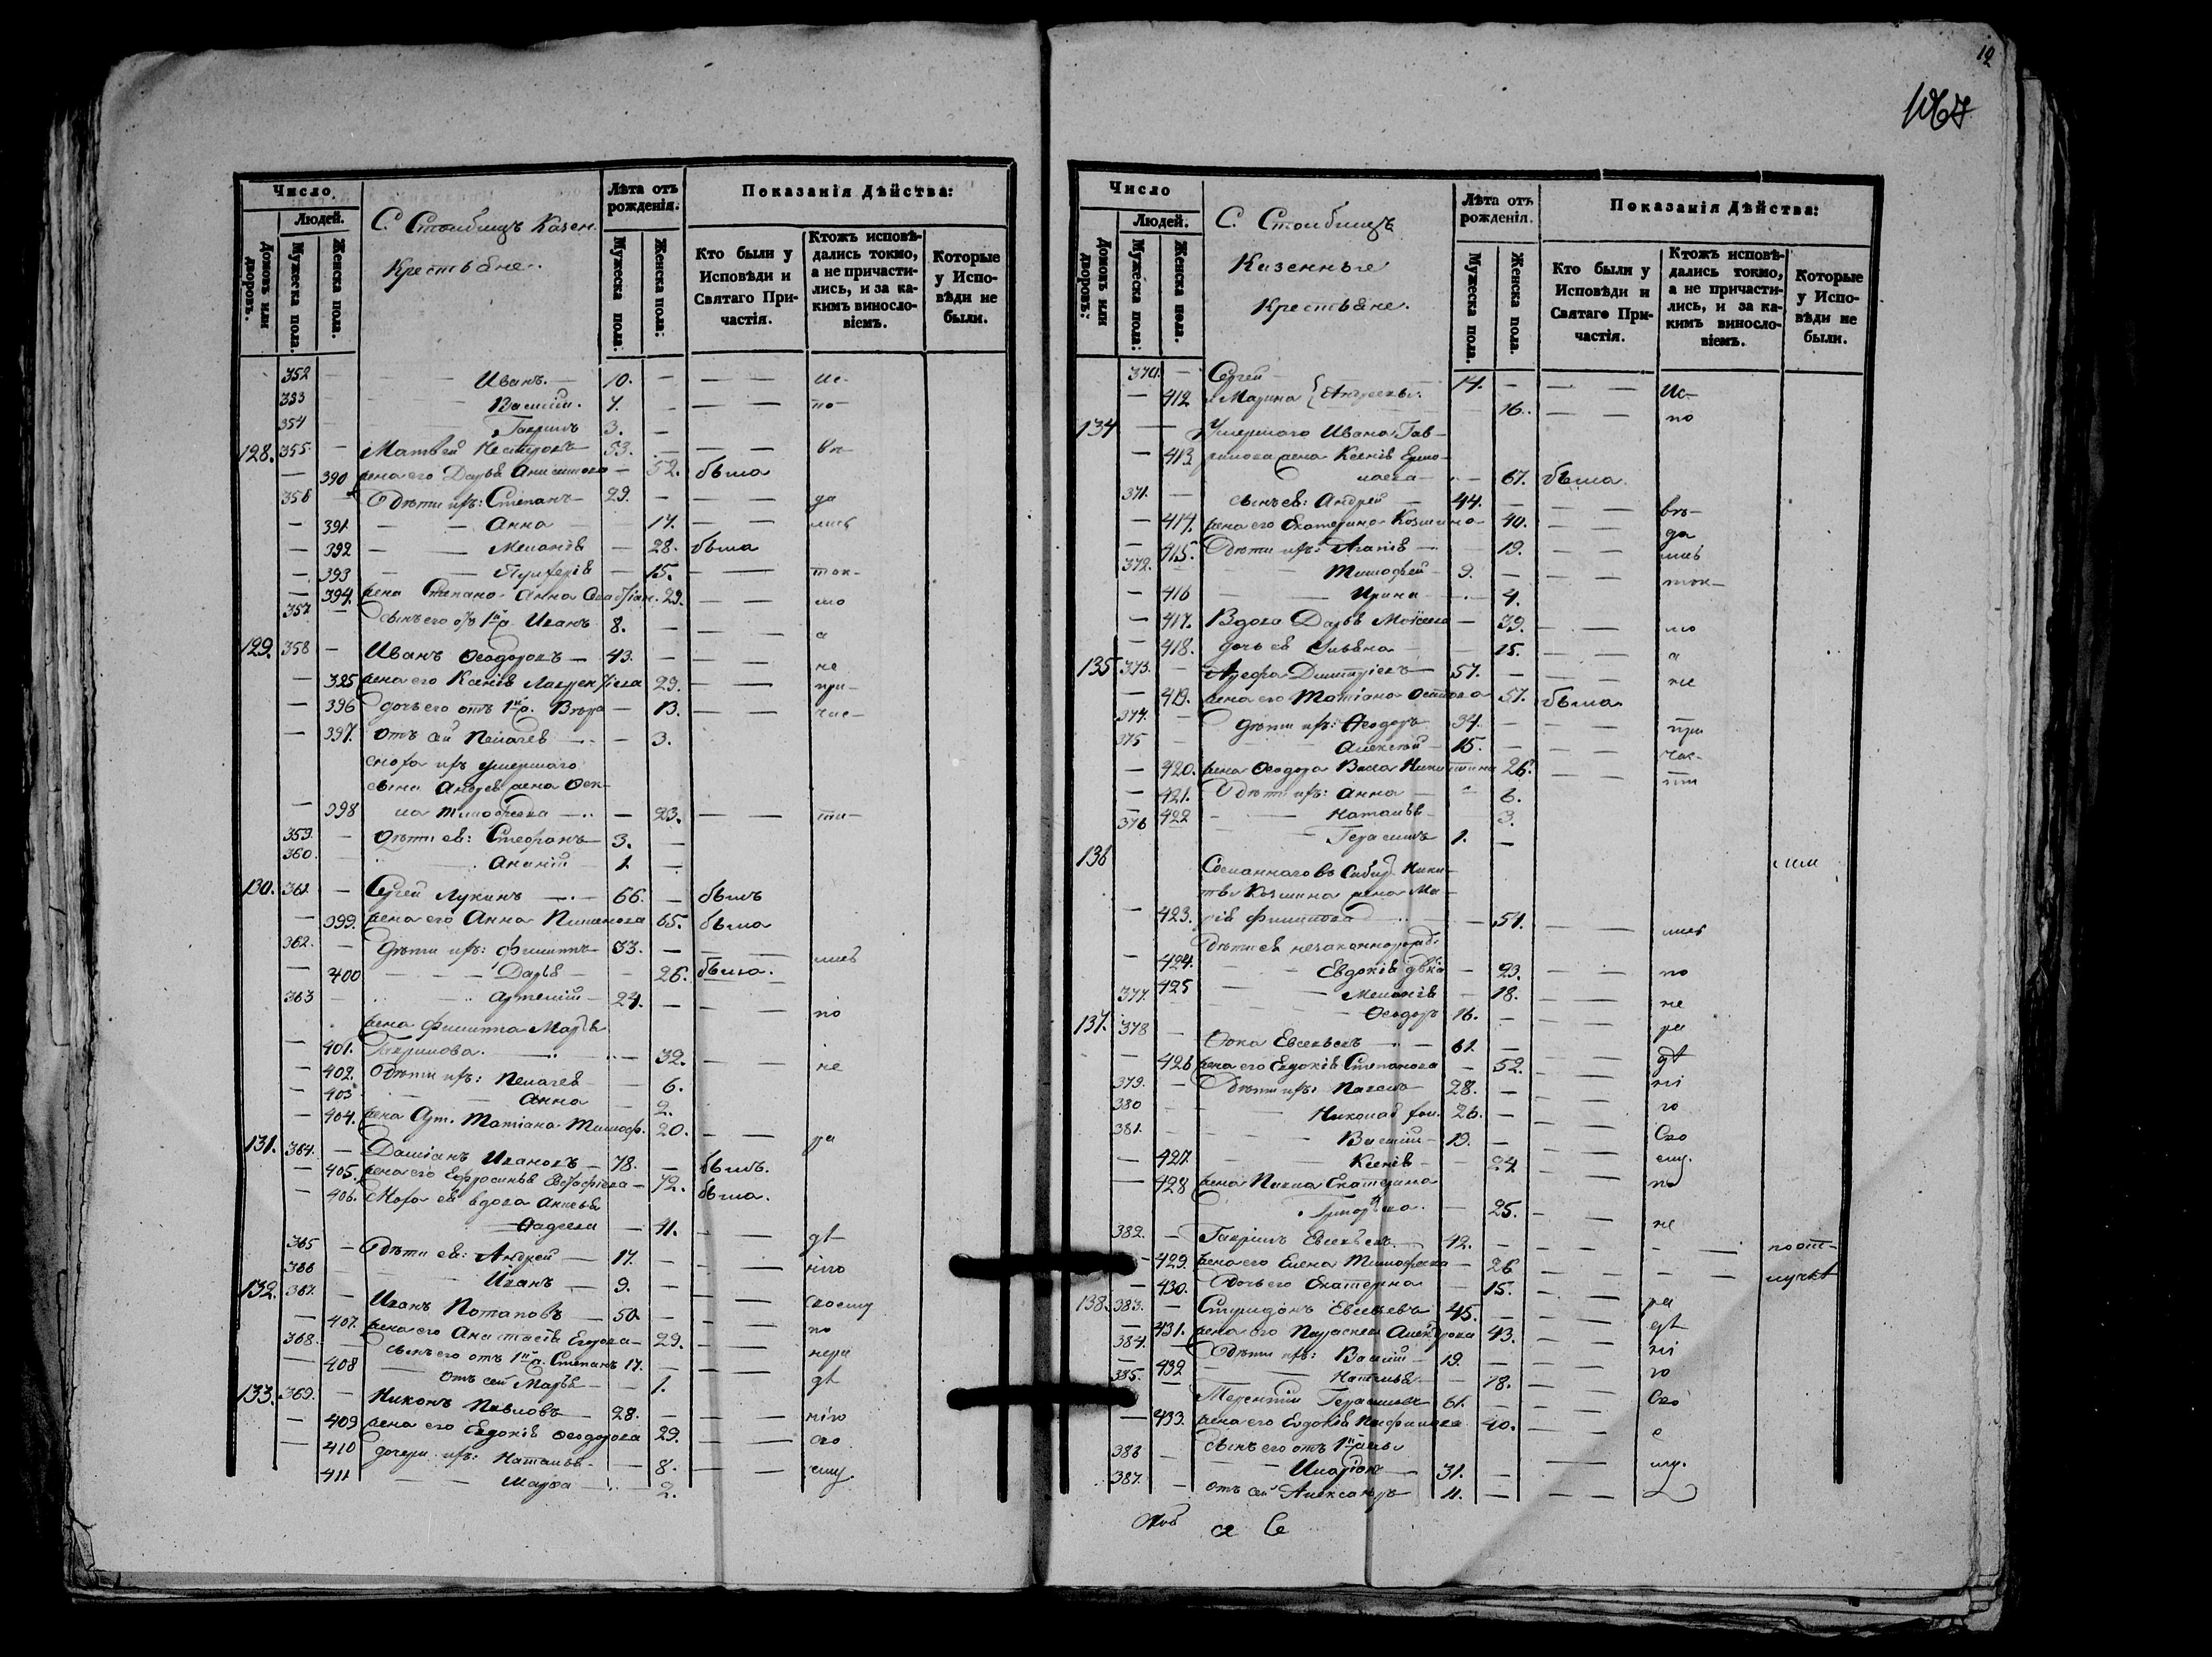 12
1067
Число
Людей.
Домовъ или дворовъ.
Мужеска пола.
Женска пола.
С. Столбищъ Казен.
Крестьяне.
Лѣта отъ рожденія.
Мужеска пола:
Женска пола:
Показанія Дѣйства:
Кто были у Исповѣди и Святаго Причастія.
Ктожъ исповѣдались токмо, а не причастились, и за какимъ винословіемъ.
Которые у Исповѣди не были.
352 — — Иванъ. — 10. — — — Ис-
353 Василій. 7. — — — по-
354 Гаврилъ 3. —
128. 355. — Матвѣй Несторовъ 53. — — — вѣ-
— 390 жена его Дарья Анисимова — 52. была
356 — Дѣти ихъ: Степанъ — 29. — — — да
— 391. — — Анна 17. — — лись
— 392 — — Меланія — 28. была
— 393 — — — 15. — — ток-
— 394. жена Степана Анна 29. — — мо
357 — сынъ его отъ 1й ж. Иванъ 8. — — — а
129. 358 — Иванъ Ѳеодоровъ — 43. — — — не
— 395 жена его Ксенія Лаврентіева 29. — — при-
— 396 дочь его отъ 1й ж. — 13. — — час-
— 397. отъ сей Пелагея — — 3.
сноха ихъ умершаго
сына Андрея жена Ѳек-
— 398 ла Тимофеева — — 23. — — ти-
359. — Дѣти ея: Стефанъ — 3. —
360. — Ананій — 1 —
130. 361 — Сергѣй Лукинъ — 66. — былъ
— 399. жена его Анна 65. была
362. — Дѣти ихъ: Филиппъ — 33. — — — лись
— 400 — — Дарья — — 26. была.
363 — Артемій — 24. — — — по
жена Филиппа Марья
— 401. Гаврилова. — — 32. — — не
— 402. Дѣти ихъ: Пелагея — — 6.
— 403 — Анна — 2.
— 404. жена Арт. Татіана Тимоф. 20. — — ра
131. 364. — Даміанъ Ивановъ — 78. — былъ.
— 405. жена его Евфросинья — 72. была.
— 406. Сноха ея вдова
Фадеева — 41. — — дѣ
365 — Дѣти ея: Андрей — 17. — — — нію
366 — Иванъ — 9. —
132. 367. — Иванъ Потаповъ — 50. — — — своему
— 407. жена его Анастасія Егорова — 29. — — по
368. — сынъ его отъ 1й ж. Степанъ 17. — — — нера
— 408 — отъ сей Марья — — 1. дѣ
133. 369. — Никонъ Павловъ — 28. — — — нію
— 409 жена его Евдокія Ѳеодорова 29. — — сво
— 410 дочери ихъ: Наталья — — 8. — — ему.
411 — — Марѳа — 2.
Число
Людей.
Домовъ или дворовъ:
Мужеска пола:
Женска пола.
С. Столбищъ
Казенные
Крестьяне.
Лѣта отъ рожденія.
Мужеска пола.
Женска пола.
Показанія Дѣйства:
Кто были у Исповѣди и Святаго Причастія.
Ктожъ исповѣдались токмо, а не причастились, и за какимъ винословіемъ.
Которые у Исповѣди не были.
370. — Сергѣй 14. — — — Ис-
— 412 и Марина Андреевы. — 16. — — по
134 — — Умершаго Ивана Гав-
— 413. рилова жена Ксенія Ермо-
лаева — — 67. была.
371. — сынъ ея: Андрей — 44. — — — вѣ-
— 414. жена его Екатерина Козмина — 40. — — да
— 415. Дѣти ихъ: Агапія — 19. — — лись
372. — Тимофей — 9. — — — ток-
— 416 — — Ирина — 4.
— 417. Вдова Дарья Моисеева — 39. — — мо
— 418. дочь ея Ульяна — 15. — — а
135 373. — Арефа Димитріевъ — 57. — — — не
— 419. жена его Татіана Осипова 57. была
374. — Дѣти ихъ: Ѳеодоръ — 34. — — — при
375 — Алексѣй — 15. — — — час-
— 420. жена Ѳеодора Васса Никитина 26. — — ти
— 421. Дѣти ихъ: Анна — 6.
— 422 — — Наталья — 3.
376 Герасимъ 1. —
136 Сосланнаго въ Сибир. Ники- лии
ты Козмина жена Ма-
— 423. рія Филиппова — — 51. — — лись
Дѣти ея незаконнорожд.
— 424. — Евдокія двка — 23. — — по
425 — — Меланія — 18. — — не
377. — — Ѳеодоръ 16. — — — ра
137. 378 — Ѳока Евсевьевъ — 61. — — — дѣ
— 426 жена его Евдокія Степанова — 52. — — ні
379. — Дѣти ихъ: Павелъ 28. — — — ю
380 — — Николай 26. — — — Сво
381. — — Василій — 19. — — — ему.
— 427. — — Ксенія — 24 — — по
— 428 жена Павла Екатерина
Григорьева. — 25. — — не
382. — Гавріилъ Евсевьевъ — 42. — — — — поот-
— 429. жена его Елена Тимофеева — 26 — — — лучкѣ
— 430. дочь его Екатерина — 15. — — ра
138. 383. — Спиридонъ Евсевьевъ 45. — — — дѣ
— 431. жена его Параскева 43. — — ні
384. — Дѣти ихъ: Василій — 19. — — — ю
— 432 — — Наталья — — 18. — — Сво
385. — Терентій Герасимовъ 61. — — — е
— 433. жена его Евдокія 40. — —
386 — сынъ его отъ 1й жены
Иларіонъ — 31. — — — му.
387. — отъ сей Александръ 11. — — —